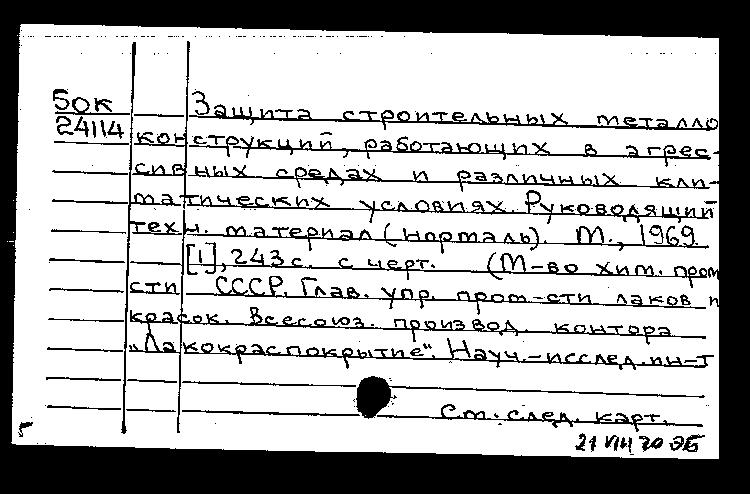 БОК
24114
Защита строительных металло
конструкций, работающих в агрес-
сивных средах и различных кли-
матических условиях. Руководящий
техн. материал (нормаль). М., 1969.
[1], 243 с. с черт. (М-во хим. пром
сти СССР. Глав. упр. пром-сти лаков и
красок. Всесоюз. производ. контора
„Лакокраспокрытие". Науч.-исслед. ин-т
См. след. карт.
21 VIII 70 ЭБ